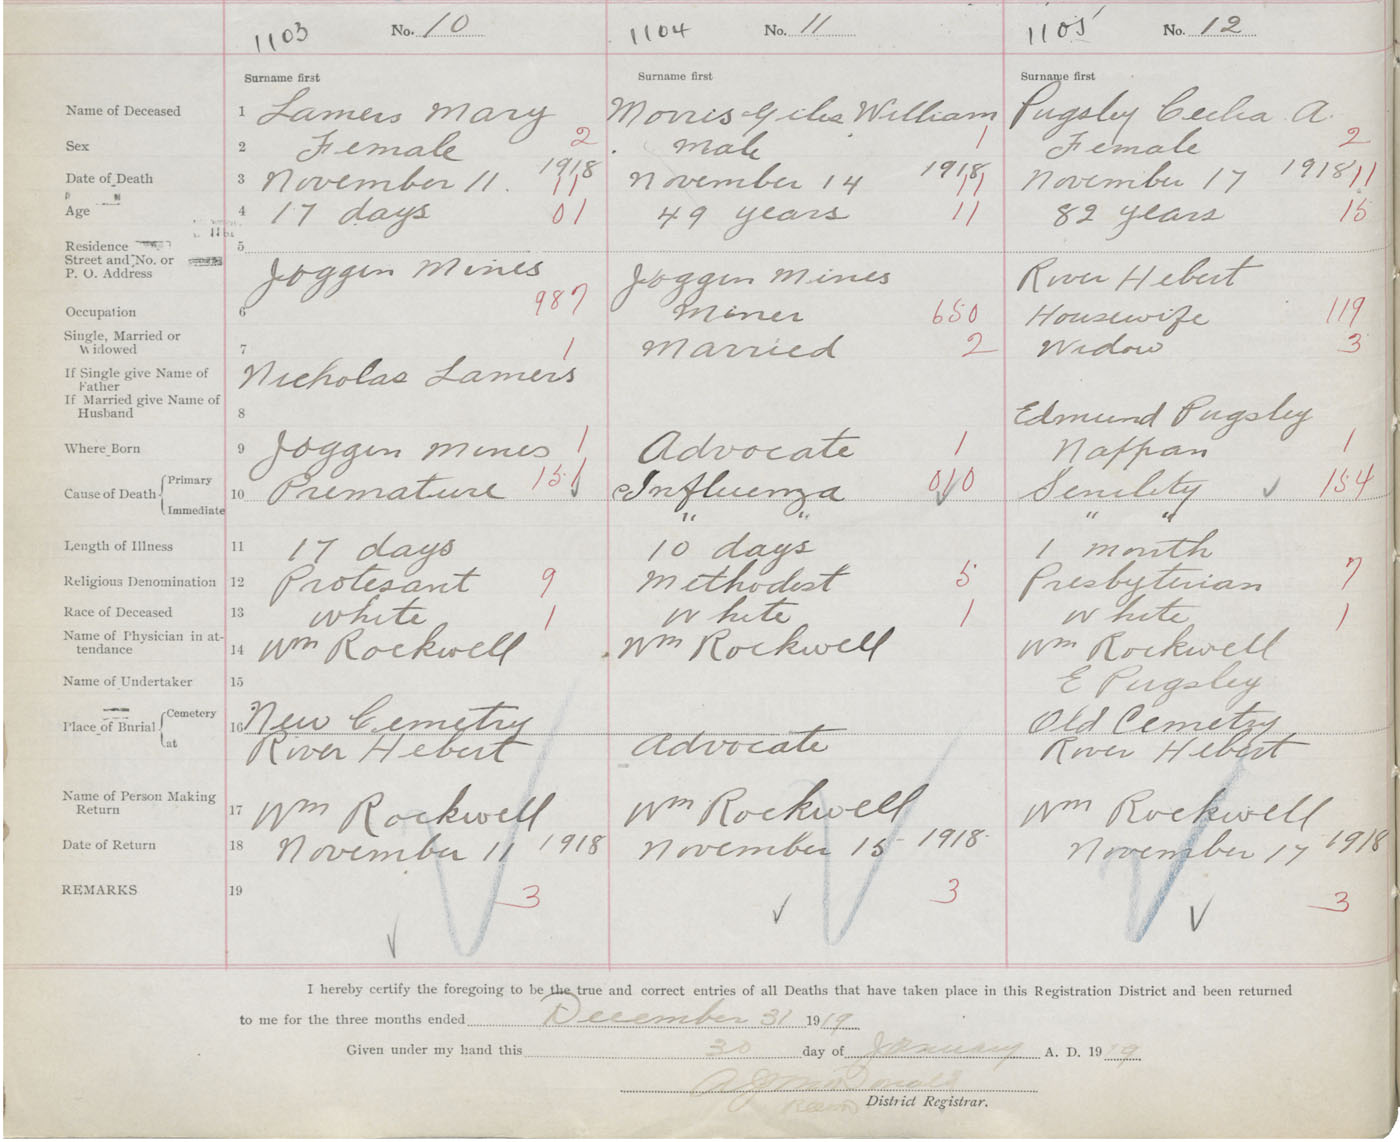 1103 No. 10 1104 No. 11 1105 No. 12
Surname first Surname first Surname first
Name of Deceased 1 Lamers Mary Morris Giles William Pugsley Cecilia A.
Sex 2 Female 2 Male 1 Female 2
Date of Death 3 November 11. 1918 11 November 14 1918 11 November 17 1918 11
Age 4 17 days 01 49 years 11 82 years 15
Residence 5
Street and No. or
P. O. Address Joggin Mines Joggin Mines River Hebert
Occupation 6 987 Miner 650 Housewife 119
Single, Married or
Widowed 7 1 Married 2 Widow 3
If Single give Name of
Father Nicholas Lamers
If Married give Name of
Husband 8 Edmund Pugsley
Where Born 9 Joggin Mines 1 Advocate 1 Nappan 1
Cause of Death Primary 10 Premature 151 Influenza 010 Senility 154
Immediate " " " "
Length of Illness 11 17 days 10 days 1 month
Religious Denomination 12 Protesant 9 Methodist 5 Presbyterian 7
Race of Deceased 13 White 1 White 1 White 1
Name of Physician in at-
tendance 14 Wm Rockwell Wm Rockwell Wm Rockwell
Name of Undertaker 15 E Pugsley
Place of Burial Cemetery 16 New Cemetry Old Cemetry
at River Hebert Advocate River Hebert
Name of Person Making
Return 17 Wm Rockwell Wm Rockwell Wm Rockwell
Date of Return 18 November 11 1918 November 15 1918 November 17 1918
REMARKS 19 3 3 3
I hereby certify the foregoing to be the true and correct entries of all Deaths that have taken place in this Registration District and been returned
to me for the three months ended December 31 1919
Given under my hand this 30 day of January A. D. 1919
McDonald
District Registrar.